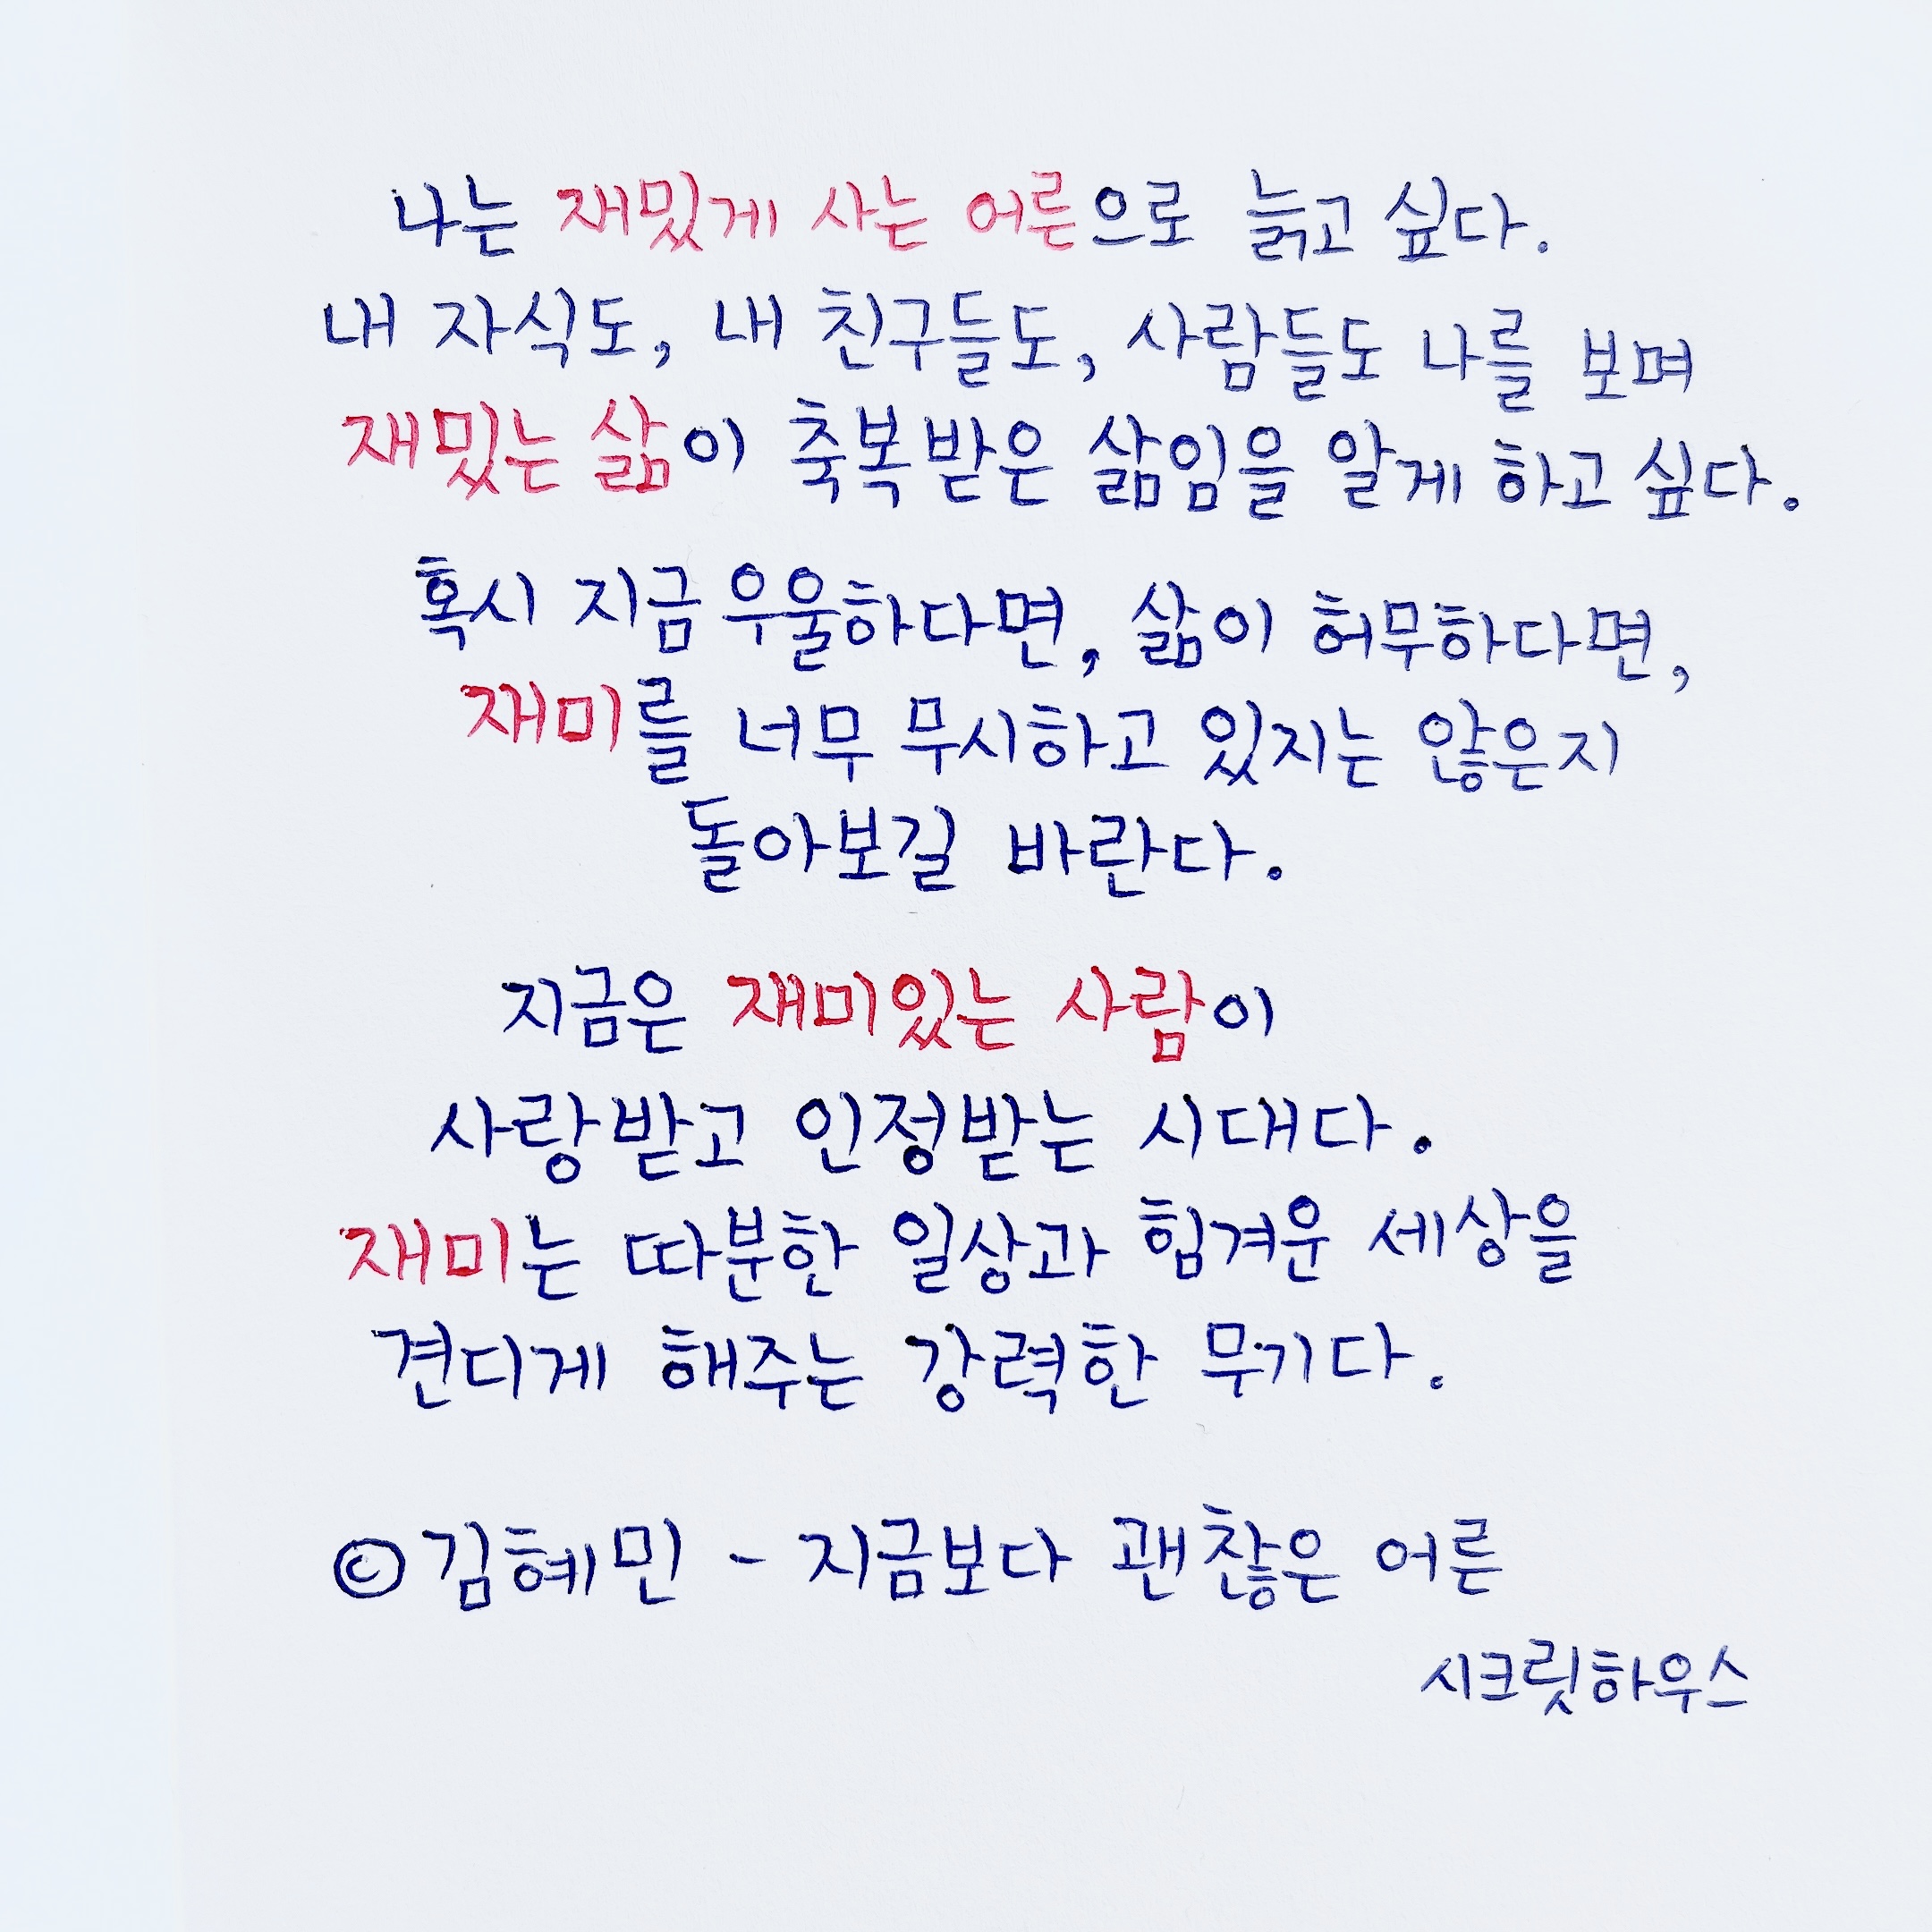 나는 재밌게 사는 어른으로 늙고 싶다.
내 자식도, 내 친구들도, 사람들도 나를 보며
재밌는 삶이 축복받은 삶임을 알게 하고 싶다.
혹시 지금 우울하다면, 삶이 허무하다면,
재미를 너무 무시하고 있지는 않은지
돌아보길 바란다.
지금은 재미있는 사람이
사랑받고 인정받는 시대다.
재미는 따분한 일상과 힘겨운 세상을
견디게 해주는 강력한 무기다.
© 김혜민 - 지금보다 괜찮은 어른
시크릿하우스